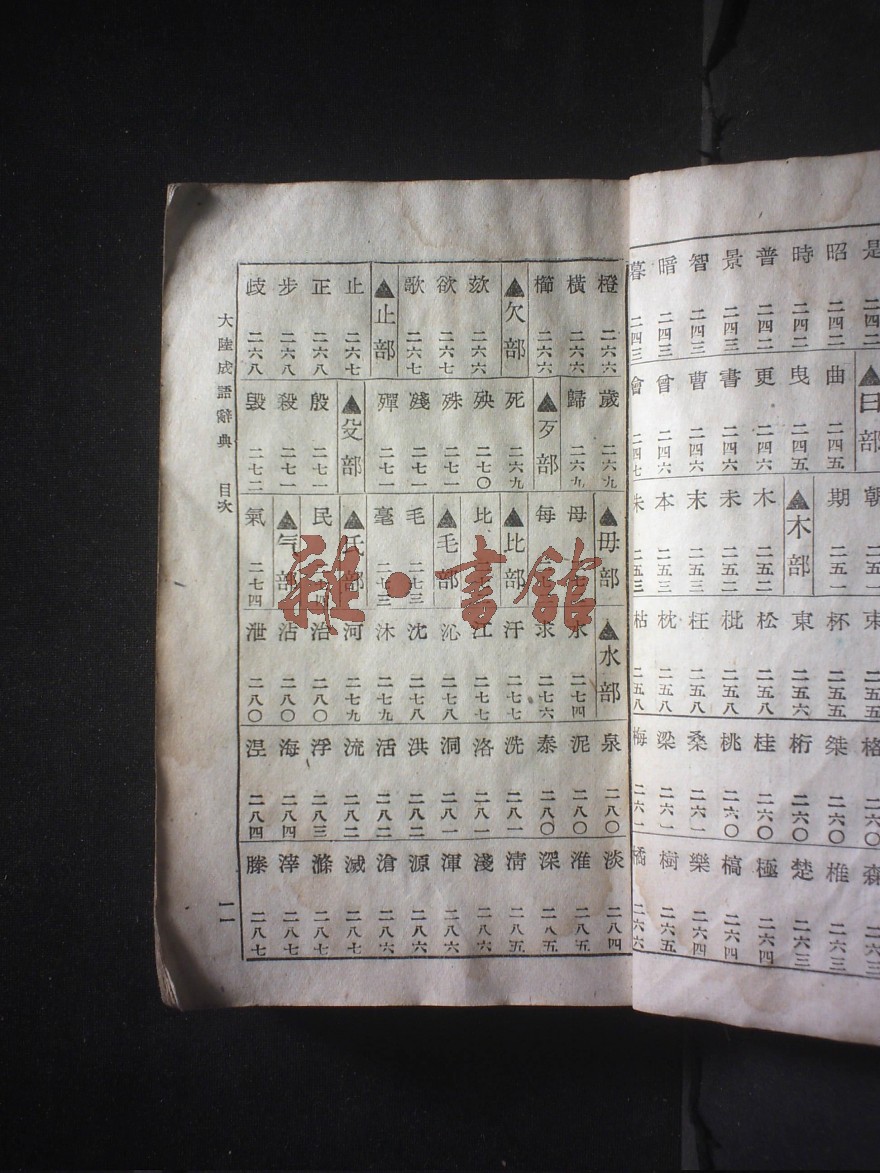 是二四二
昭二四二
時二四二
普二四二
景二四三
智二四三
暗二四三
暮二四三
▲曰部
曲二四五
曳二四五
更二四六
書二四六
曹二四六
曾二四六
會二四七
朝二五一
期二五一
▲木部
木二五二
未二五二
末二五三
本二五三
朱二五三
束二五五
杯二五五
東二五六
松二五八
枇二五八
枉二五八
枕二五八
枯二五八
格二六〇
桀二六〇
桁二六〇
桂二六〇
桃二六〇
桑二六一
梁二六一
梅二六一
森二六三
椎二六三
楚二六三
極二六四
槁二六四
樂二六四
樹二六五
橘二六六
橙二六六
橫二六六
櫛二六六
▲欠部
欬二六六
欲二六七
歌二六七
▲止部
止二六七
正二六八
步二六八
歧二六八
歲二六九
歸二六九
▲歹部
死二六九
殃二七〇
殊二七一
殘二七一
殫二七一
▲殳部
殷二七一
殺二七一
毀二七二
▲毋部
母
每
▲比部
比
▲毛部
毛二七三
毫二七三
▲氏部
民
▲气部
氣二七四
▲水部
水二七四
求二七六
汗二七七
江二七七
沁二七八
沈二七八
沐二七九
河二七九
治二八〇
沾二八〇
泄二八〇
泉二八〇
泥二八〇
泰二八〇
洗二八一
洛二八一
洞二八一
洪二八二
活二八二
流二八二
浮二八三
海二八四
涅二八四
淡二八四
淮二八五
深二八五
清二八五
淺二八六
渾二八六
源二八六
滄二八六
滅二八七
滌二八七
滓二八七
滕二八七
大陸成語辭典 目次
一一
雜·書館